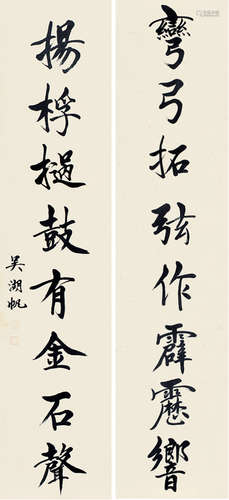 彎弓拓弦作霹靂響
揚桴撾鼓有金石聲
吳湖帆